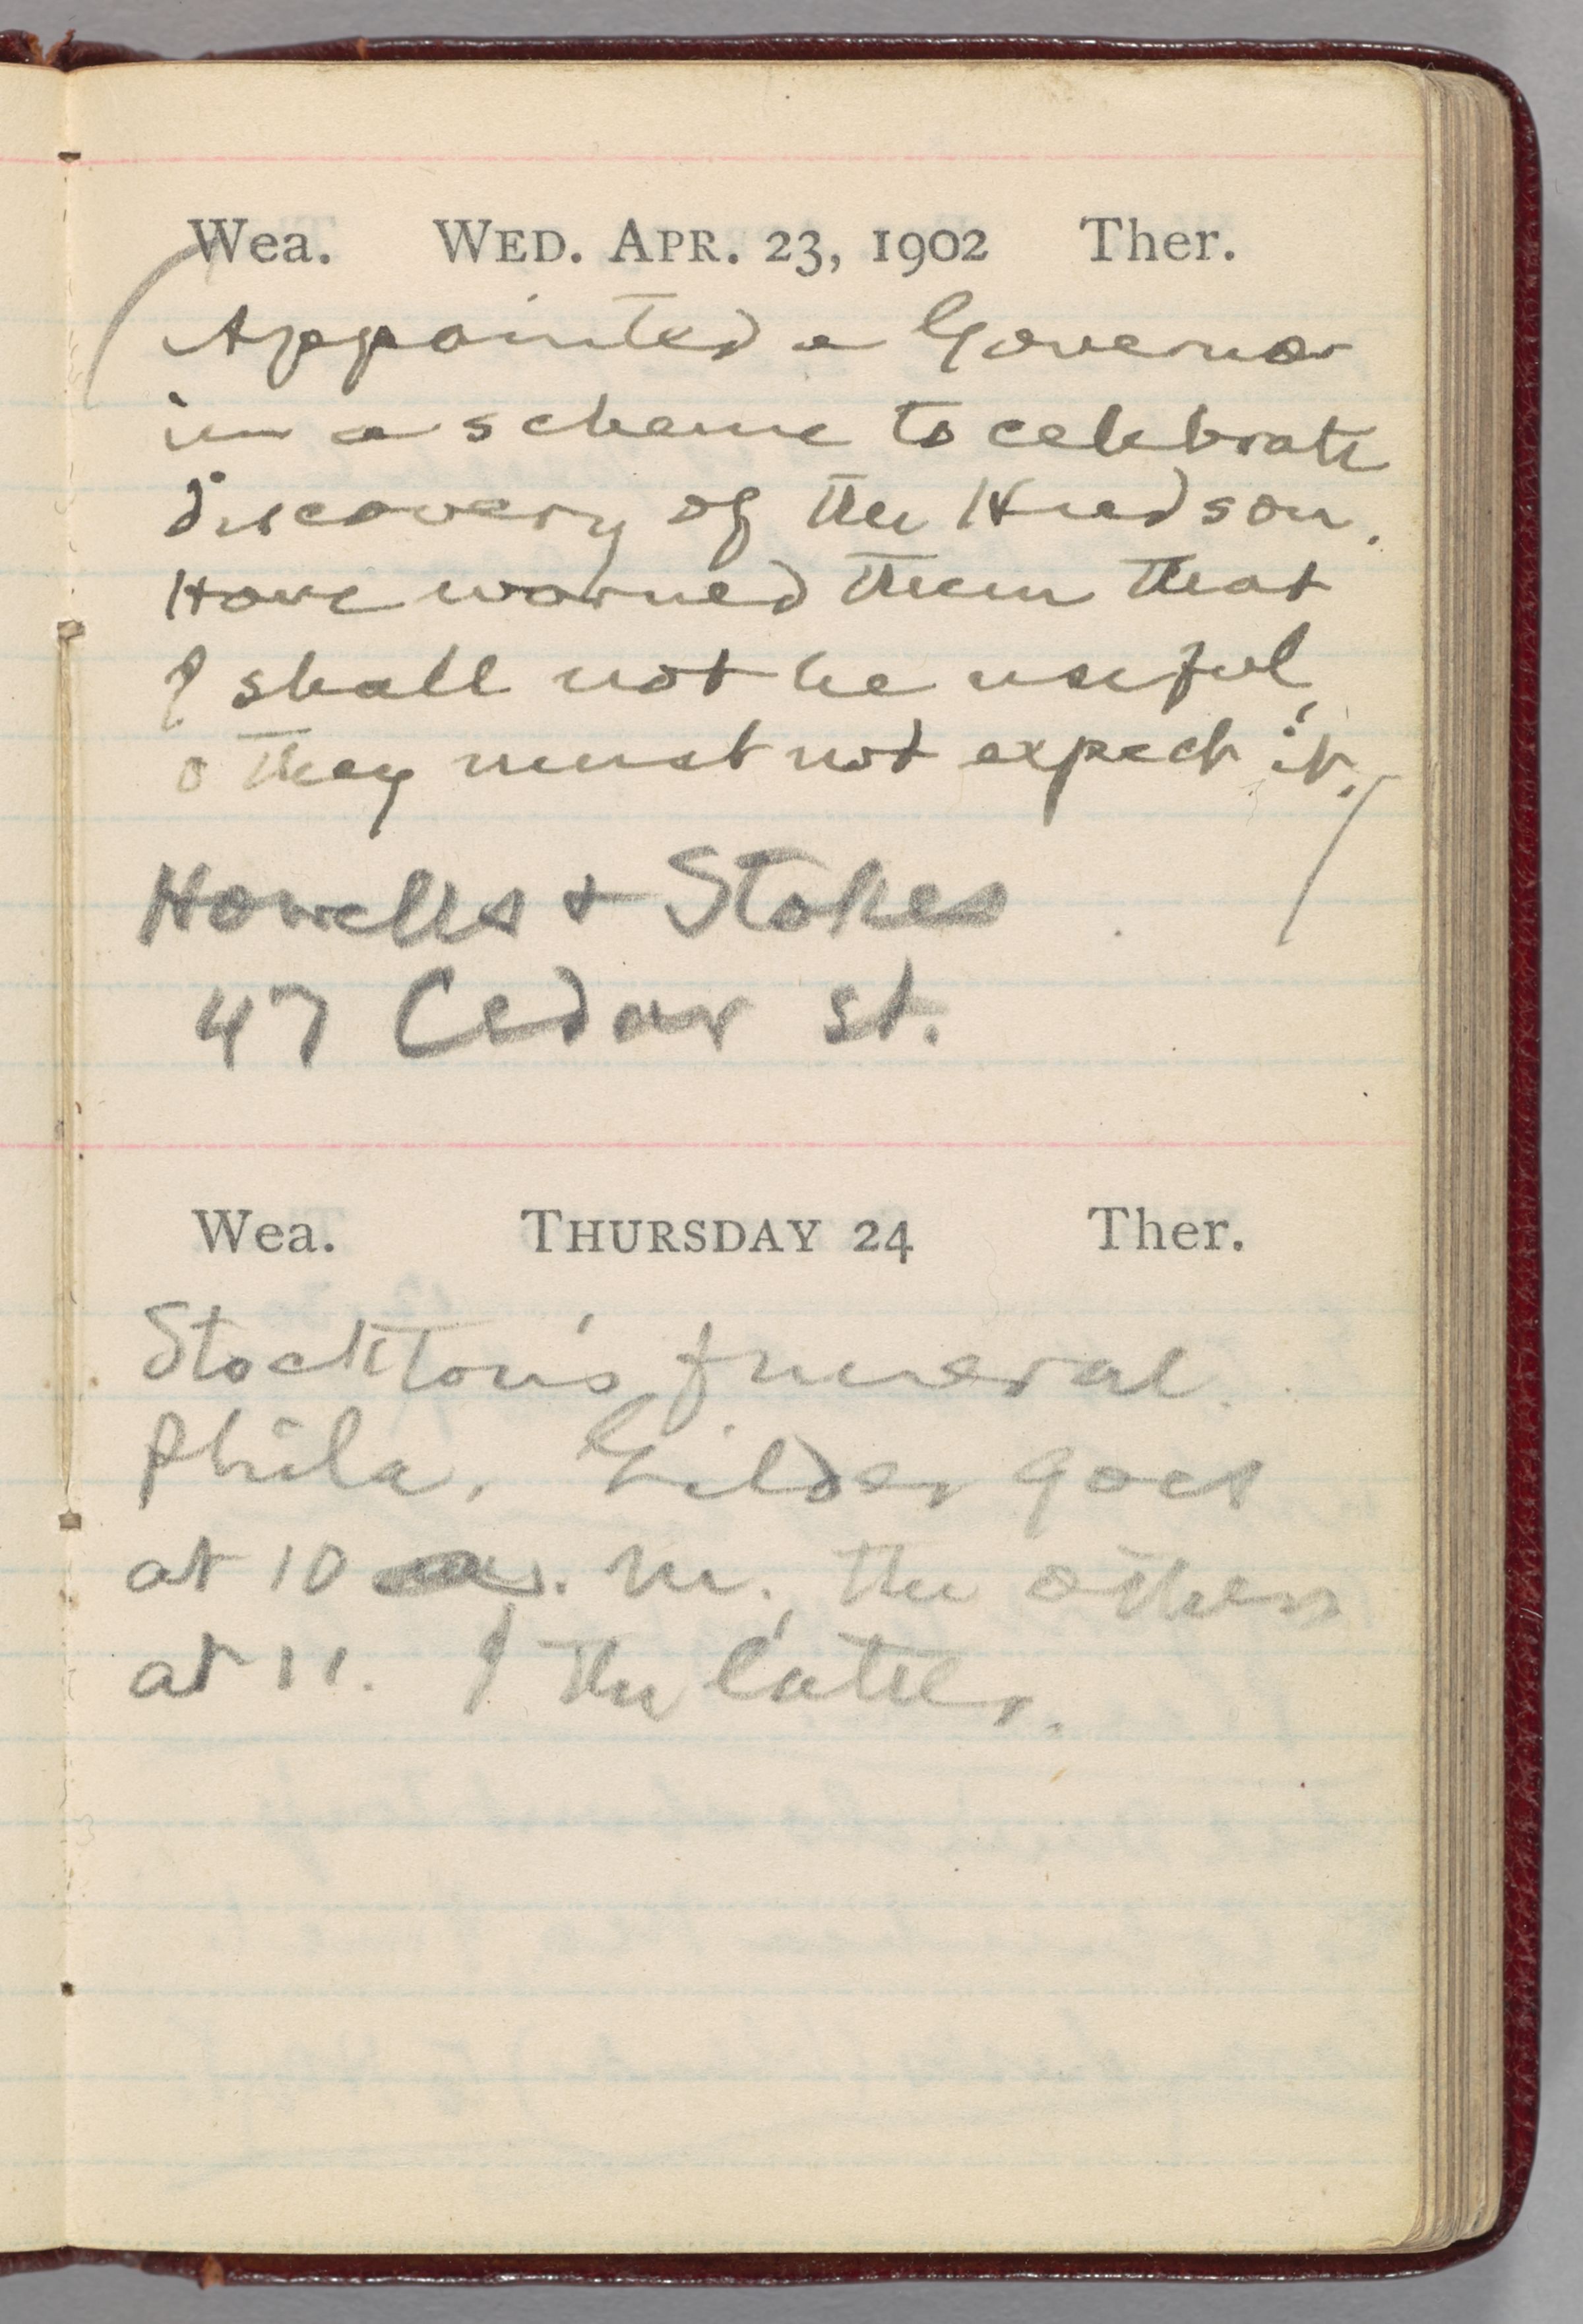 Wea. WED. APR. 23, 1902 Ther.
(Appointed a Governor
in a scheme to celebrate
discovery of the Hudson.
Have warned them that
I shall not be useful,
& they must not expect it.)
Howells & Stokes
47 Cedar st.
Wea. THURSDAY 24 Ther.
Stockton's funeral.
Phila. Gilder goes
at 10 a. m., the others
at 11. I the latter.